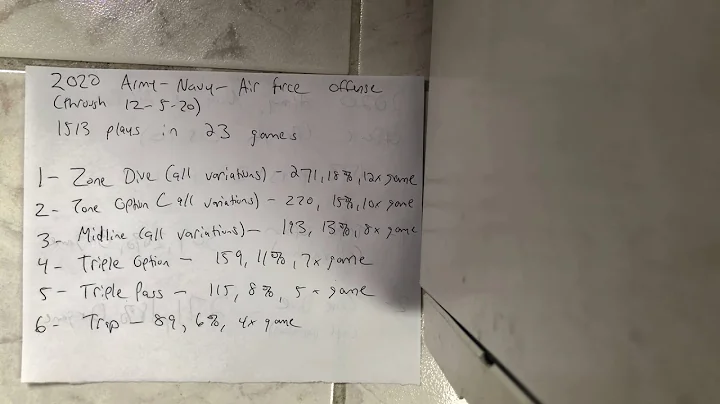 2020 Army-Navy-Air force offense
(through 12-5-20)
1513 plays in 23 games
1- Zone Dive (all variations) - 271, 18%, 12x game
2- Zone Option (all variations) - 220, 15%, 10x game
3- Midline (all variations) - 193, 13%, 8x game
4- Triple Option - 159, 11%, 7x game
5- Triple Pass - 115, 8%, 5x game
6- Trap - 89, 6%, 4x game